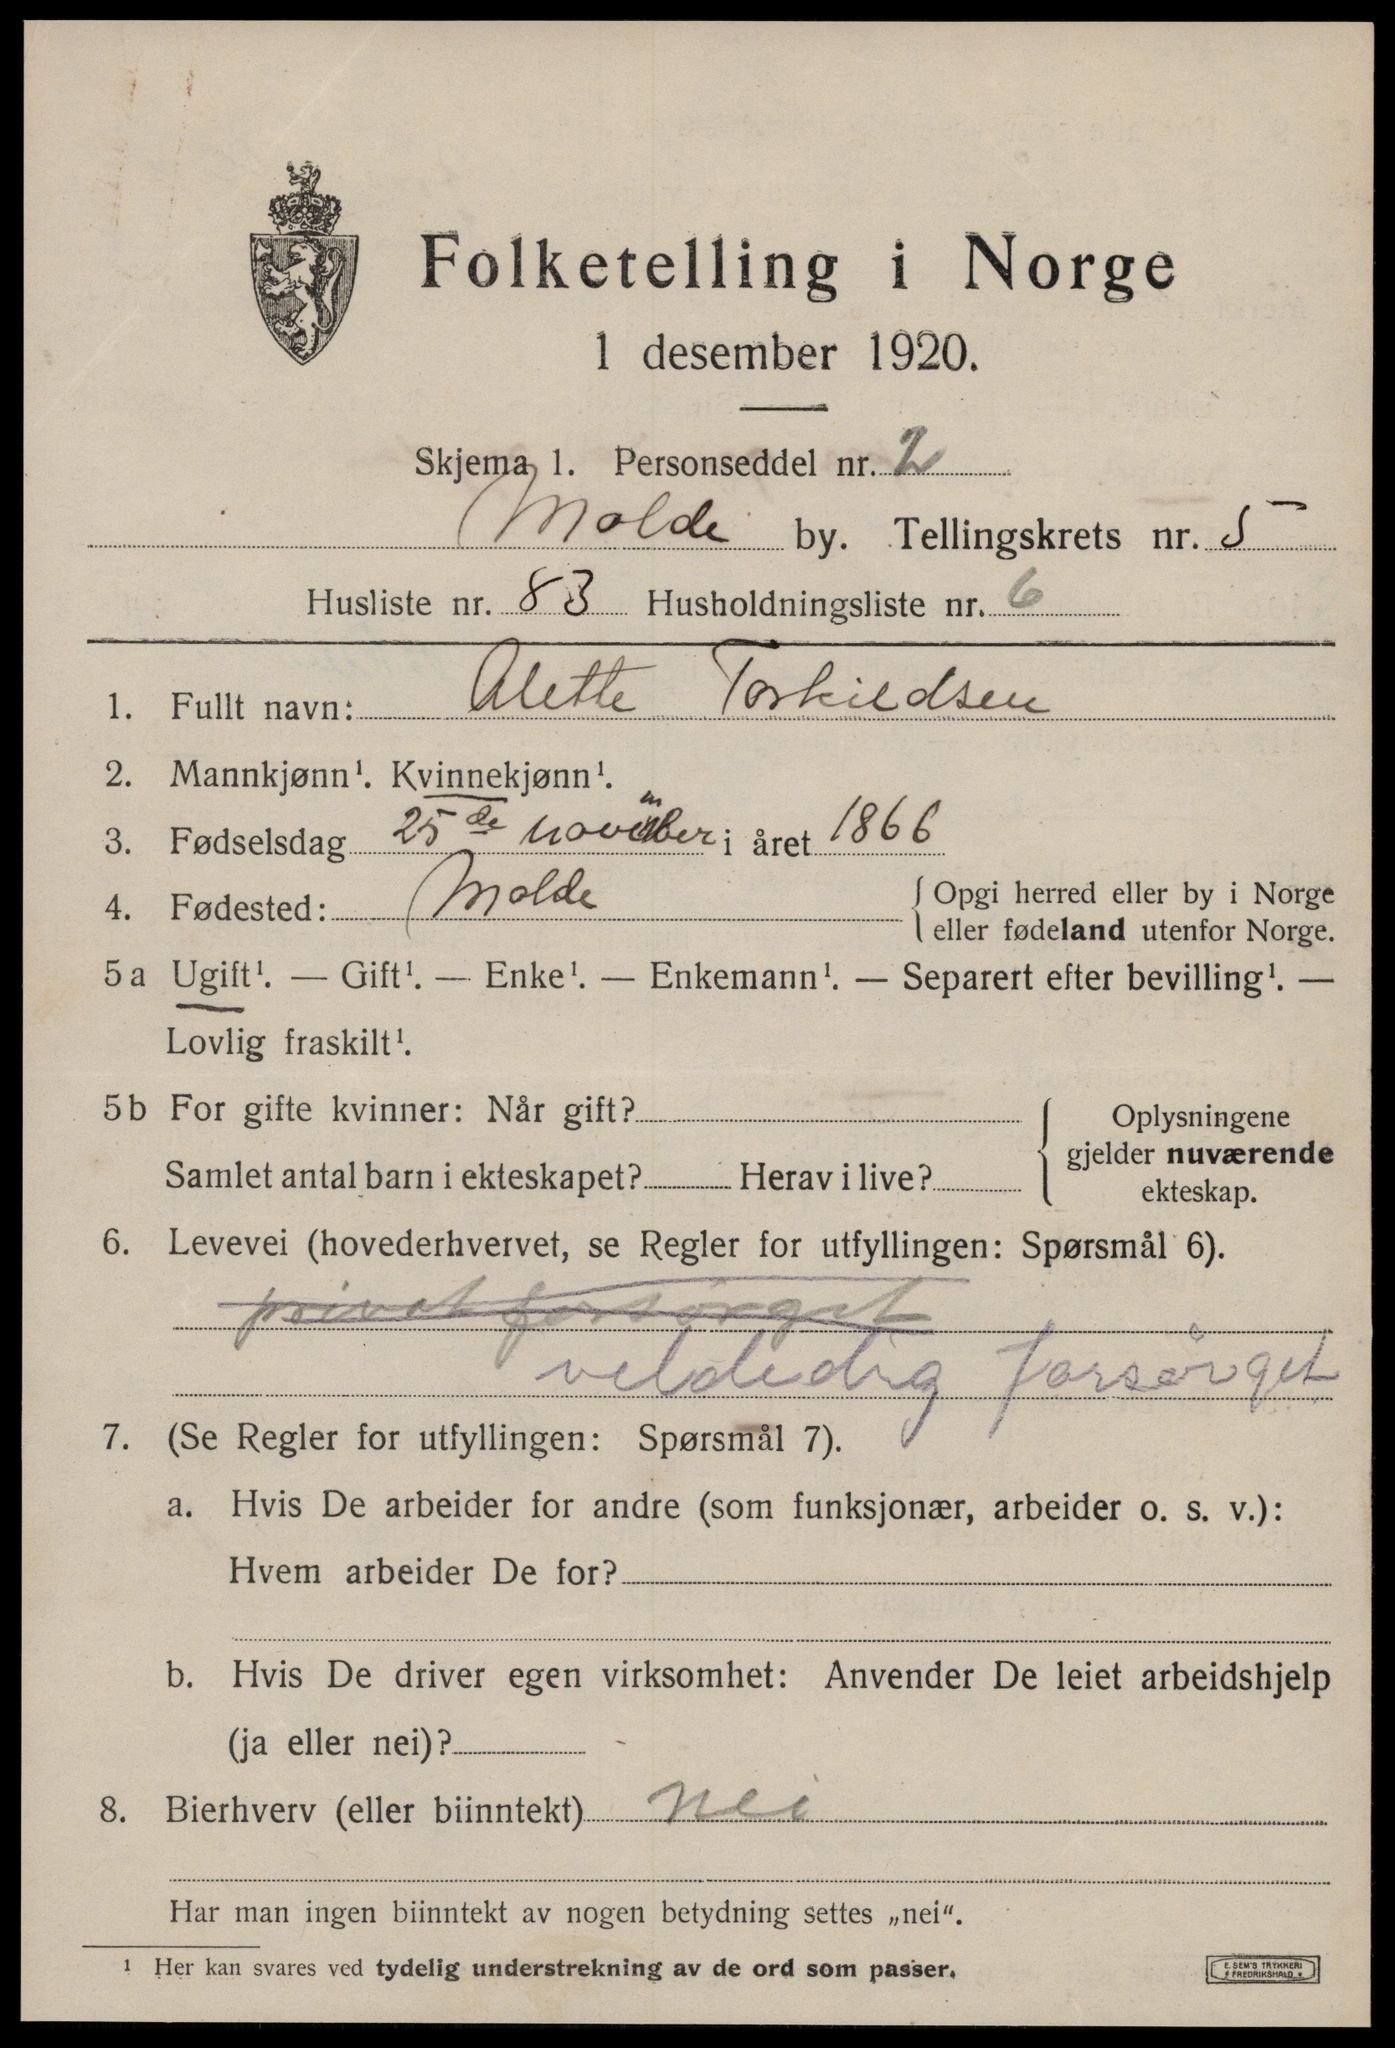 Folketelling i Norge
1 desember 1920.
Skjema 1. Personseddel nr. 2
Molde by. Tellingskrets nr. 5
Husliste nr. 83 Husholdningsliste nr. 6
1. Fullt navn: Alette Torkildsen
2. Mannkjønn¹. Kvinnekjønn¹.
3. Fødselsdag 25de november i året 1866
4. Fødested: Molde { Opgi herred eller by i Norge
eller fødeland utenfor Norge.
5a Ugift¹. — Gift¹. — Enke¹. — Enkemann¹. — Separert efter bevilling¹. —
Lovlig fraskilt¹.
5b For gifte kvinner: Når gift? Oplysningene
gjelder nuværende
Samlet antal barn i ekteskapet? Herav i live? ekteskap.
6. Levevei (hovederhvervet, se Regler for utfyllingen: Spørsmål 6).
privat forsørget
veldedig forsørget
7. (Se Regler for utfyllingen: Spørsmål 7).
a. Hvis De arbeider for andre (som funksjonær, arbeider o. s. v.):
Hvem arbeider De for?
b. Hvis De driver egen virksomhet: Anvender De leiet arbeidshjelp
(ja eller nei)?
8. Bierhverv (eller biinntekt) nei
Har man ingen biinntekt av nogen betydning settes „nei".
¹ Her kan svares ved tydelig understrekning av de ord som passer.
E. SEM'S TRYKKERI
FREDRIKSHALD